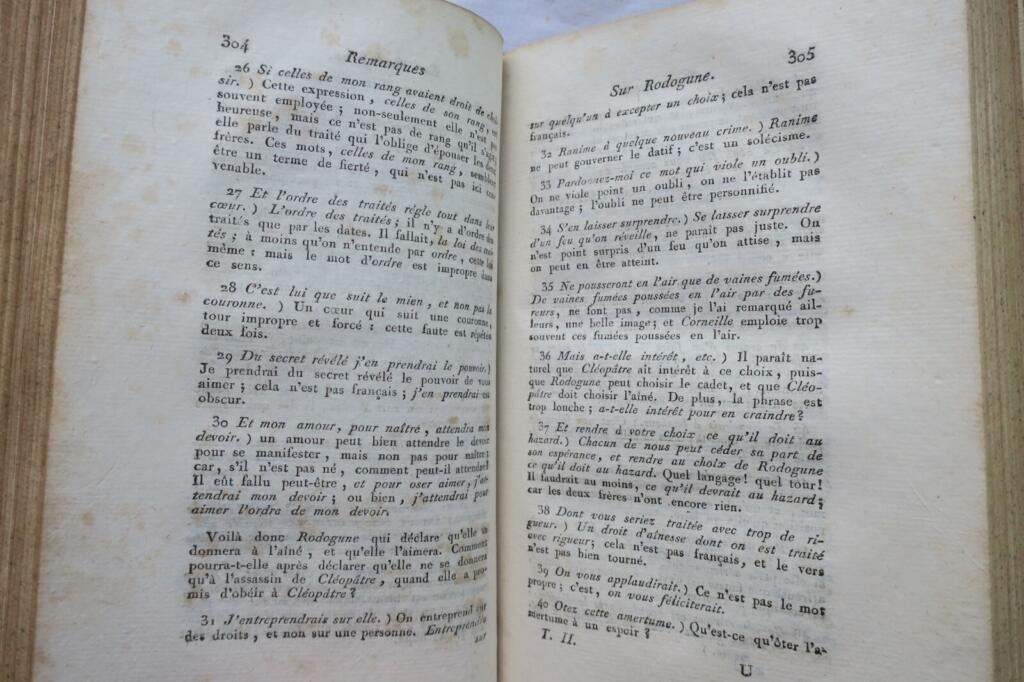 304
Remarques
26 Si celles de mon rang avaient droit de choi-
sir. ) Cette expression, celles de son rang, est
souvent employée ; non-seulement elle n'est pas
heureuse, mais ce n'est pas de rang qu'il s'agit;
elle parle du traité qui l'oblige d'épouser les deux
frères. Ces mots, celles de mon rang, semblent
être un terme de fierté, qui n'est pas ici con-
venable.
27 Et l'ordre des traités règle tout dans leur
cœur. ) L'ordre des traités ; il n'y a d'ordre des
traités que par les dates. Il fallait, la loi des trai-
tés ; à moins qu'on n'entende par ordre, cette loi
même : mais le mot d'ordre est impropre dans
ce sens.
28 C'est lui que suit le mien, et non pas la
couronne. ) Un cœur qui suit une couronne,
tour impropre et forcé : cette faute est répétée
deux fois.
29 Du secret révélé j'en prendrai le pouvoir.)
Je prendrai du secret révélé le pouvoir de vous
aimer ; cela n'est pas français ; j'en prendrai est
obscur.
30 Et mon amour, pour naître, attendra mon
devoir. ) un amour peut bien attendre le devoir
pour se manifester, mais non pas pour naître ;
car, s'il n'est pas né, comment peut-il attendre?
Il eût fallu peut-être, et pour oser aimer, j'at-
tendrai mon devoir ; ou bien, j'attendrai pour
aimer l'ordre de mon devoir.
Voilà donc Rodogune qui déclare qu'elle se
donnera à l'aîné, et qu'elle l'aimera. Comment
pourra-t-elle après déclarer qu'elle ne se donnera
qu'à l'assassin de Cléopâtre, quand elle a pro-
mis d'obéir à Cléopâtre ?
31 J'entreprendrais sur elle. ) On entreprend sur
des droits, et non sur une personne. Entreprendre
sur
305
Sur Rodogune.
sur quelqu'un à excepter un choix ; cela n'est pas
français.
32 Ranime à quelque nouveau crime. ) Ranime
ne peut gouverner le datif ; c'est un solécisme.
33 Pardonnez-moi ce mot qui viole un oubli.)
On ne viole point un oubli, on ne l'établit pas
davantage ; l'oubli ne peut être personnifié.
34 S'en laisser surprendre.) Se laisser surprendre
d'un feu qu'on réveille, ne paraît pas juste. On
n'est point surpris d'un feu qu'on attise, mais
on peut en être atteint.
35 Ne pousseront en l'air que de vaines fumées.)
De vaines fumées poussées en l'air par des fu-
reurs, ne font pas, comme je l'ai remarqué ail-
leurs, une belle image ; et Corneille emploie trop
souvent ces fumées poussées en l'air.
36 Mais a-t-elle intérêt, etc. ) Il paraît na-
turel que Cléopâtre ait intérêt à ce choix, puis-
que Rodogune peut choisir le cadet, et que Cléo-
pâtre doit choisir l'aîné. De plus, la phrase est
trop louche ; a-t-elle intérêt pour en craindre ?
37 Et rendre à votre choix ce qu'il doit au
hazard.) Chacun de nous peut céder sa part de
son espérance, et rendre au choix de Rodogune
ce qu'il doit au hazard. Quel langage ! quel tour !
Il faudrait au moins, ce qu'il devrait au hazard ;
car les deux frères n'ont encore rien.
38 Dont vous seriez traitée avec trop de ri-
gueur. ) Un droit d'aînesse dont on est traité
avec rigueur; cela n'est pas français, et le vers
n'est pas bien tourné.
39 On vous applaudirait.) Ce n'est pas le mot
propre ; c'est, on vous féliciterait.
40 Otez cette amertume. ) Qu'est-ce qu'ôter l'a-
mertume à un espoir ?
T. II.
U